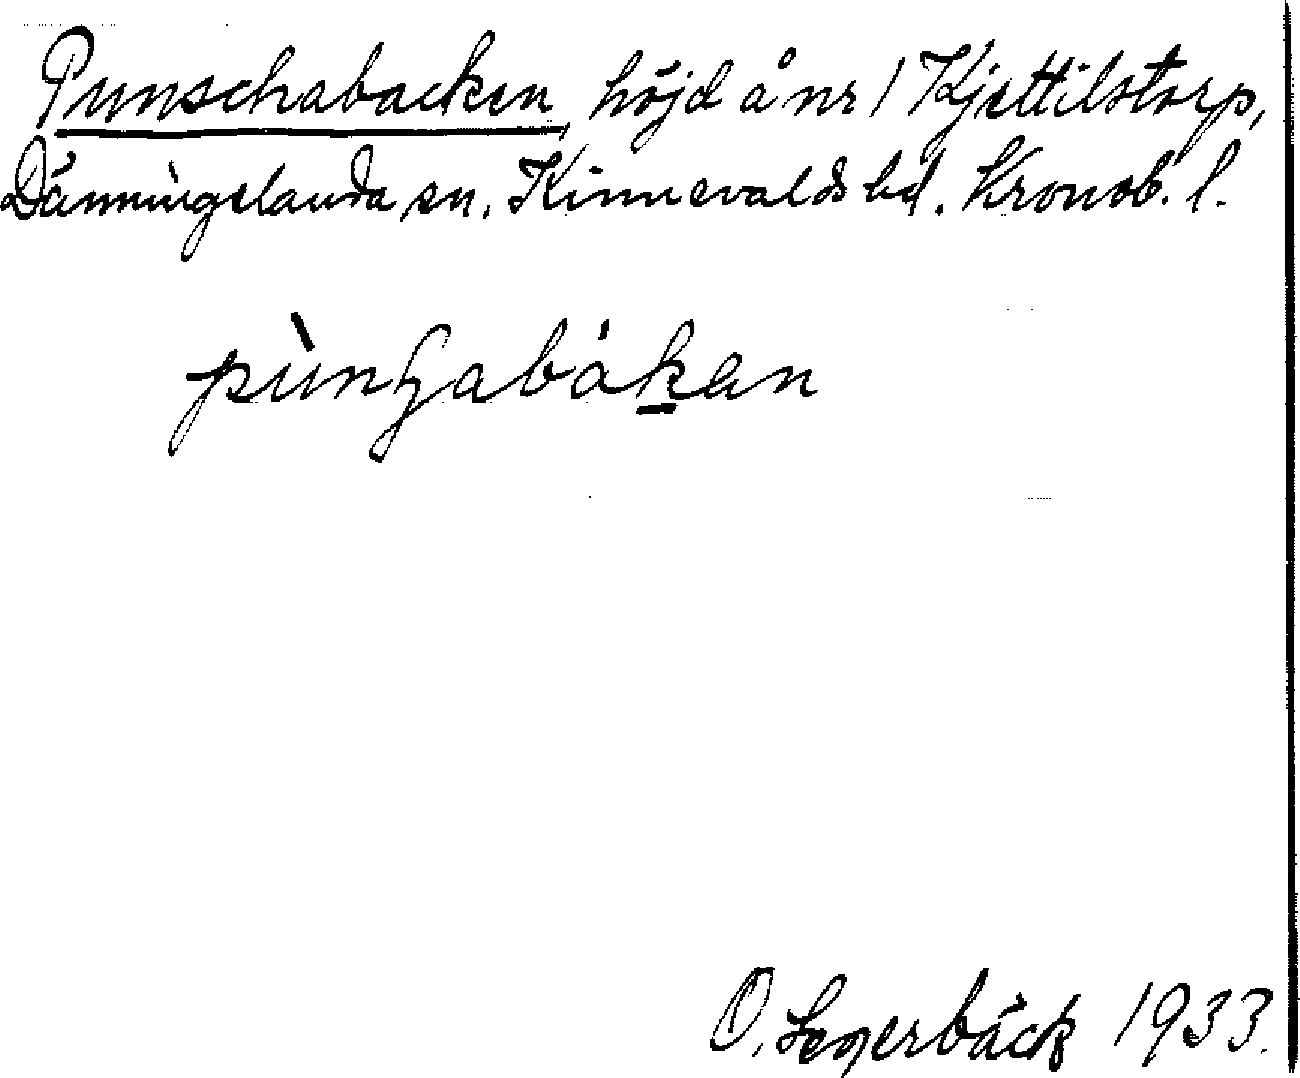 Punschabacken, höjd å nr 1 Kjettilstorp,
Dänningelanda sn. Kinnevalds hd. Kronob. l.
pùnʒabákan
O. Segerbäck 1933.